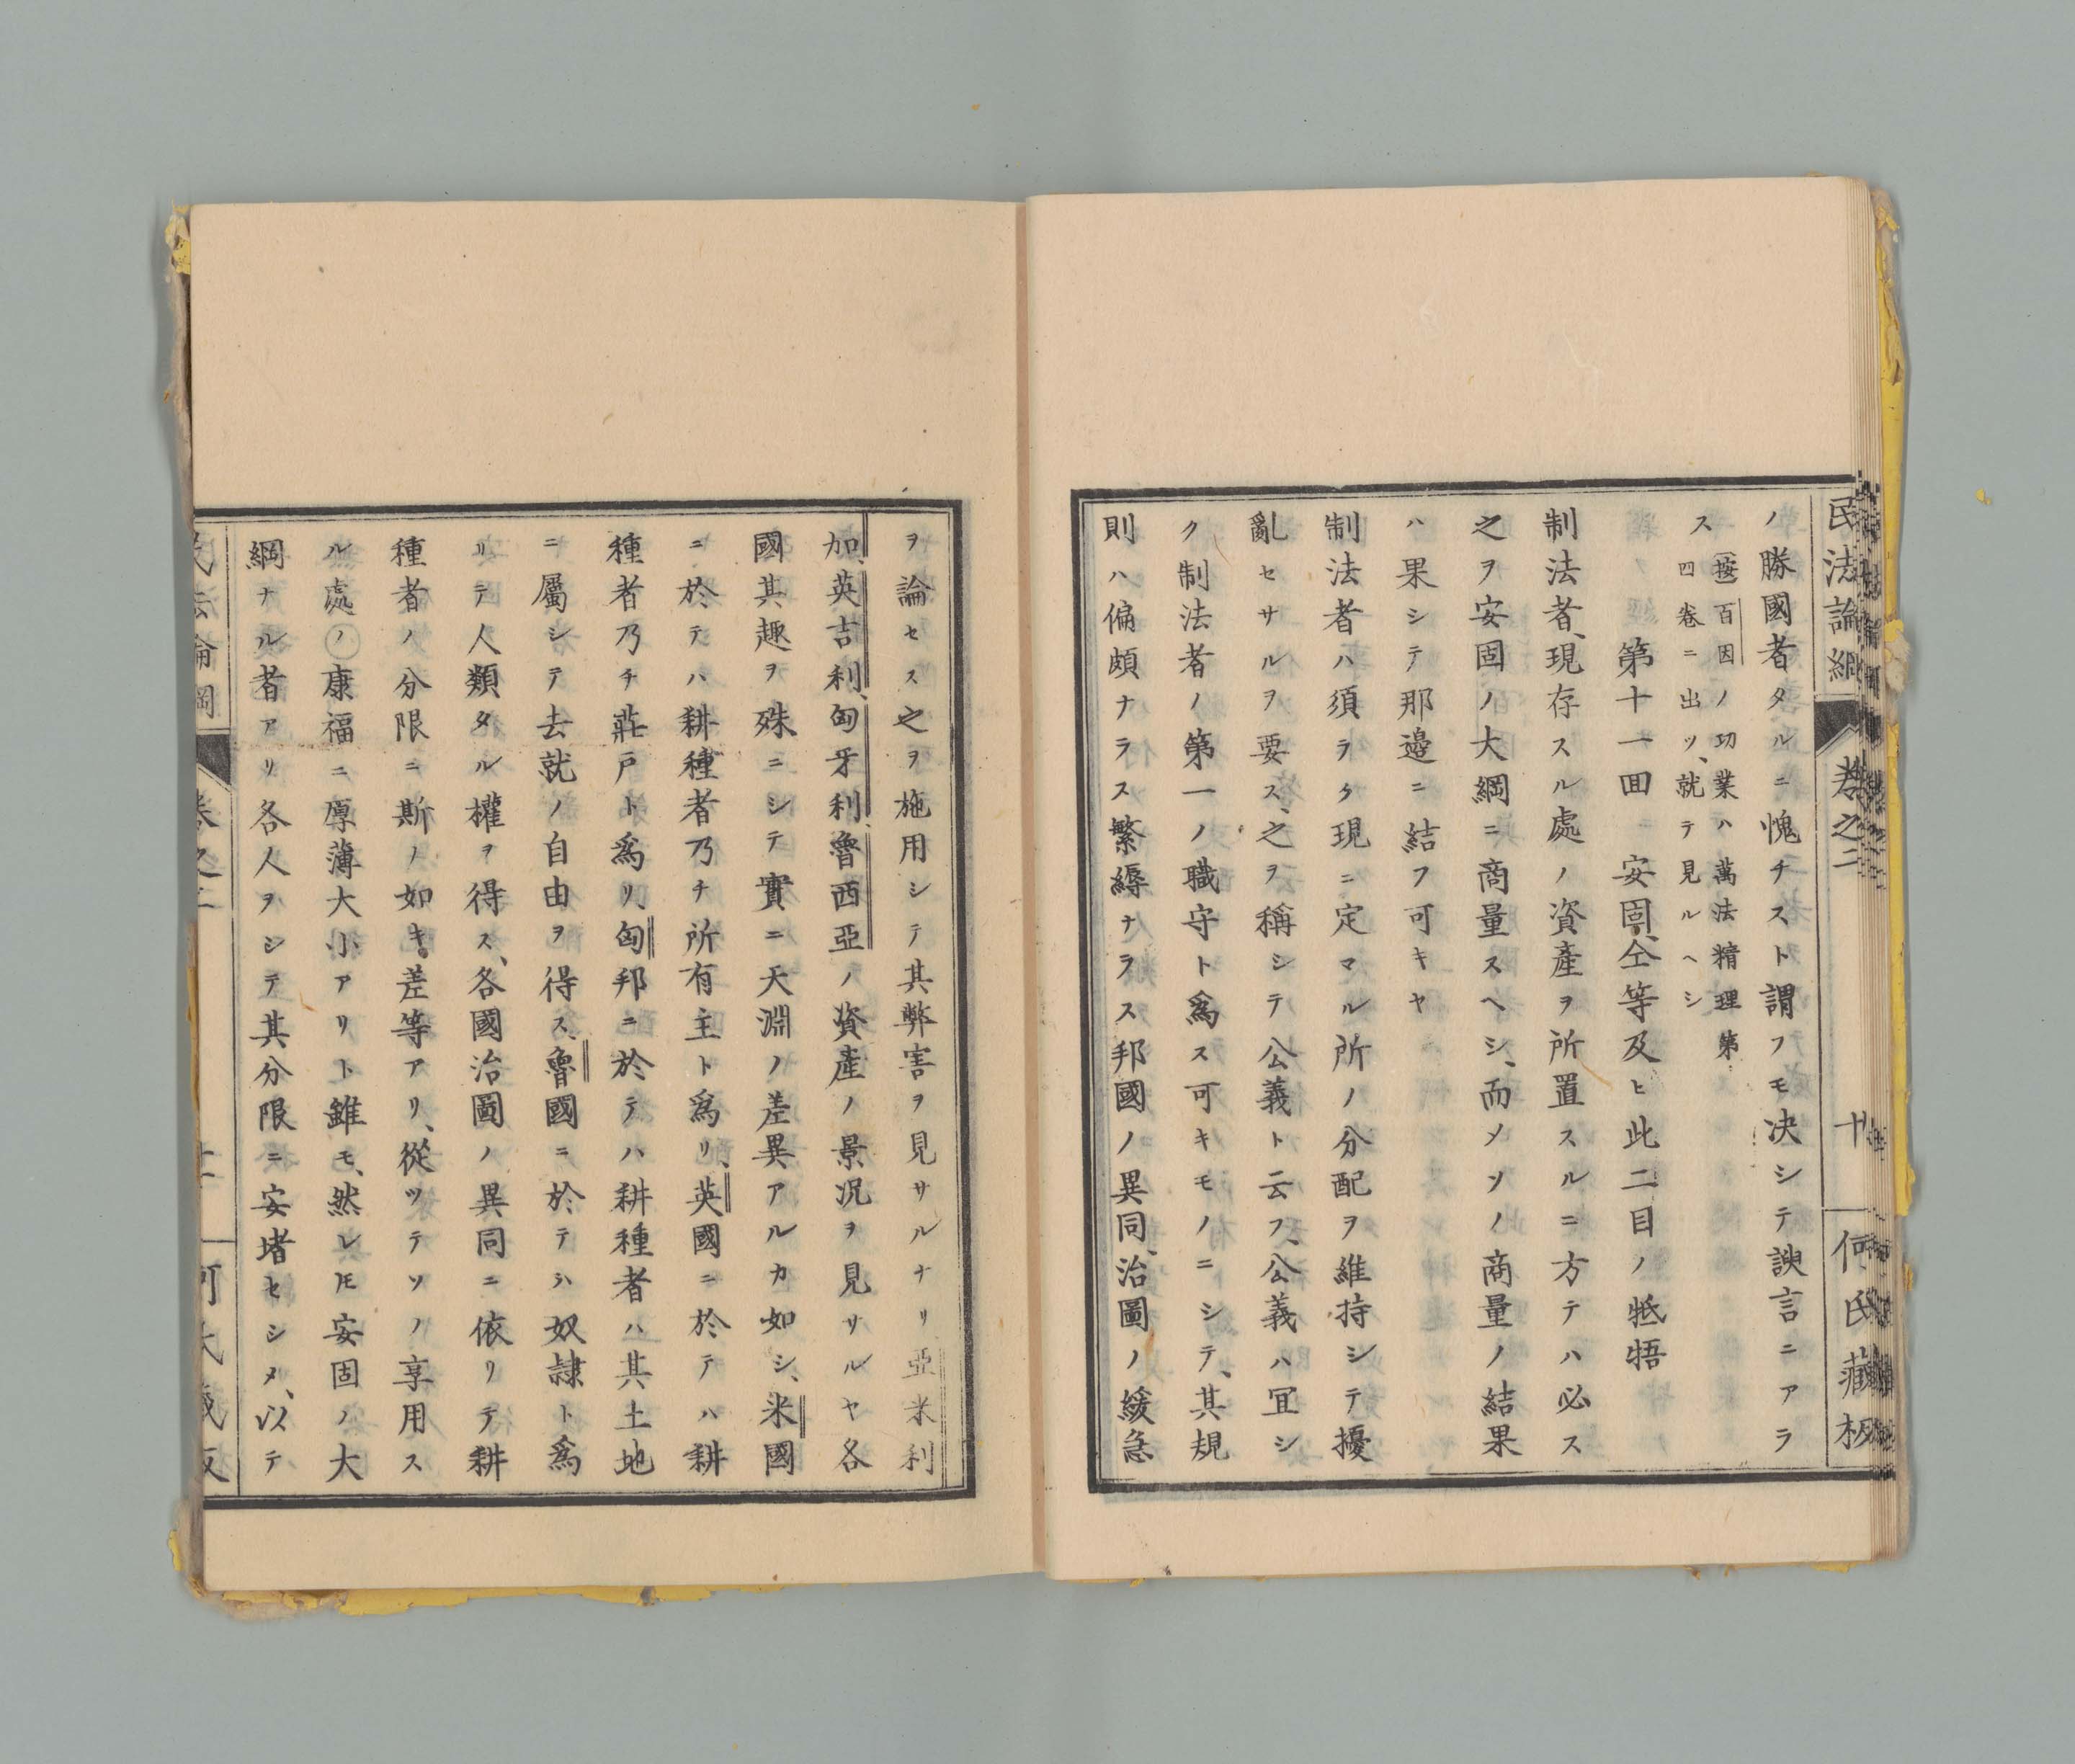 民法論綱 卷之二 十 何氏藏板
ノ勝國者タルニ愧チスト謂フモ决シテ諛言ニアラ
ス
(按)百因ノ功業ハ萬法精理第
四卷ニ出ツ、就テ見ルヘシ
第十一囬 安固、仝等及ヒ此二目ノ牴牾
制法者、現存スル處ノ資產ヲ所置スルニ方テハ必ス
之ヲ安固ノ大綱ニ商量スヘシ、而メソノ商量ノ結果
ハ果シテ那邉ニ結フ可キヤ
制法者ハ須ラク現ニ定マル所ノ分配ヲ維持シテ擾
亂セサルヲ要ス、之ヲ稱シテ公義ト云フ、公義ハ冝シ
ク制法者ノ第一ノ職守ト爲ス可キモノニシテ、其規
則ハ偏頗ナラス繁縟ナラス邦國ノ異同、治圖ノ緩急
ヲ論セス之ヲ施用シテ其弊害ヲ見サルナリ亞米利
加、英吉利、匈牙利、魯西亞ノ資產ノ景況ヲ見サルヤ各
國其趣ヲ殊ニシテ實ニ天淵ノ差異アルカ如シ、米國
ニ於テハ耕種者乃チ所有主ト爲リ、英國ニ於テハ耕
種者乃チ莊戸ト爲リ、匈邦ニ於テハ耕種者ハ其土地
ニ屬シテ去就ノ自由ヲ得ス、魯國ニ於テハ奴隷ト爲
リテ人類タル權ヲ得ス、各國治圖ノ異同ニ依リテ耕
種者ノ分限ニ斯ノ如キ差等アリ、從ツテソノ享用ス
ル處ノ康福ニ厚薄大小アリト雖モ、然レ𪜈安固ノ大
綱ナル者アリ各人ヲシテ其分限ニ安堵セシメ、以テ
民法論綱 卷之二 十一 何氏藏板